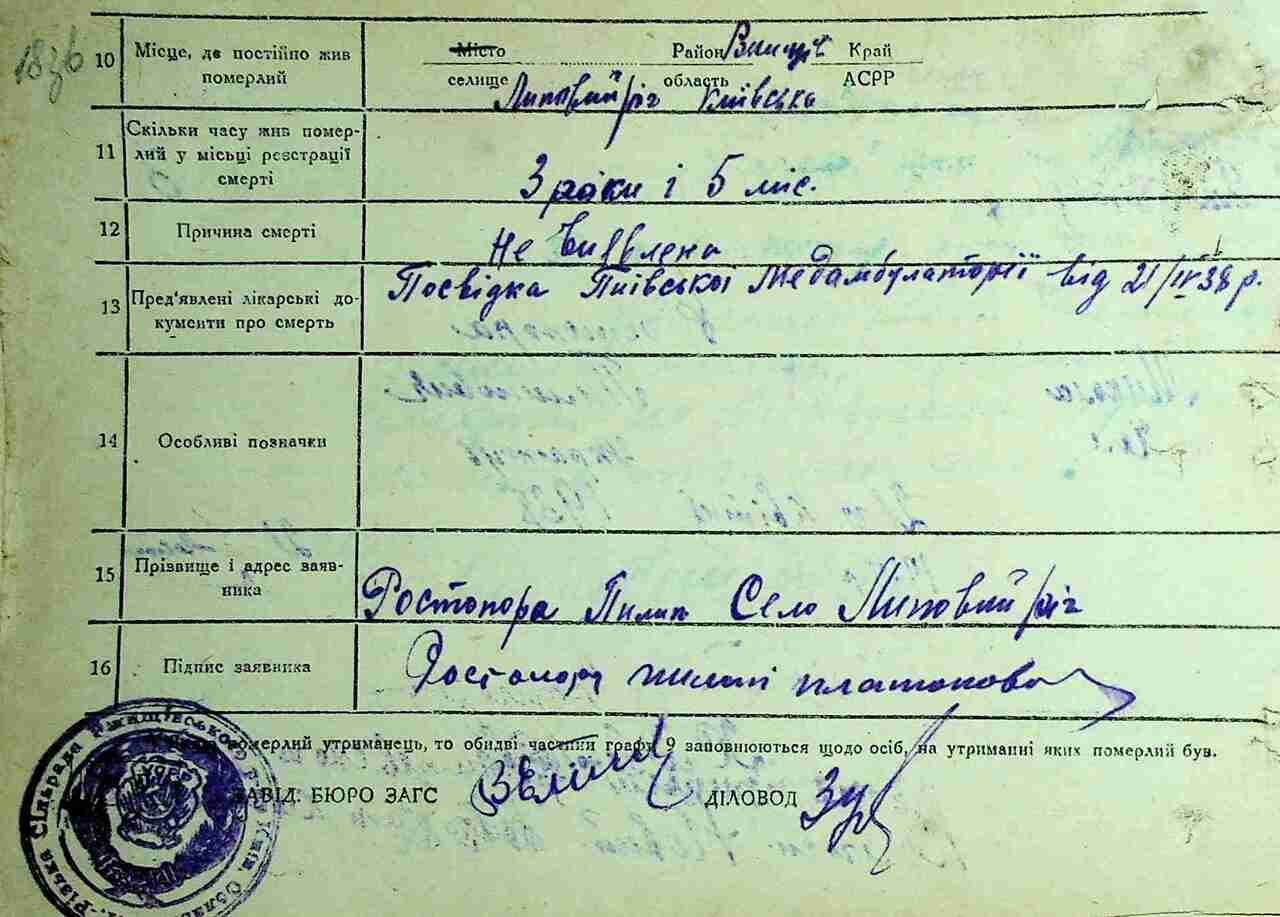 18зв
10 Місце, де постійно жив померлий
Місто Район Край
селище область АСРР
Липовий ріг Київська
11 Скільки часу жив помер-
лий у місьці реєстрації
смерті
3 роки і 5 міс.
12 Причина смерті
Не виявлена
13 Пред'явлені лікарські до-
кументи про смерть
Посвідка Пиївської Медамбулаторії від 21/IV 38 р.
14 Особливі позначки
15 Прізвище і адрес заяв-
ника
Ростопора Пилип Село Липовий ріг
16 Підпис заявника
Ростопора пилип платонови
померлий утриманець, то обидві частини графу 9 заповнюються щодо осіб, на утриманні яких померлий був.
ЗАВІД. БЮРО ЗАГС ДІЛОВОД